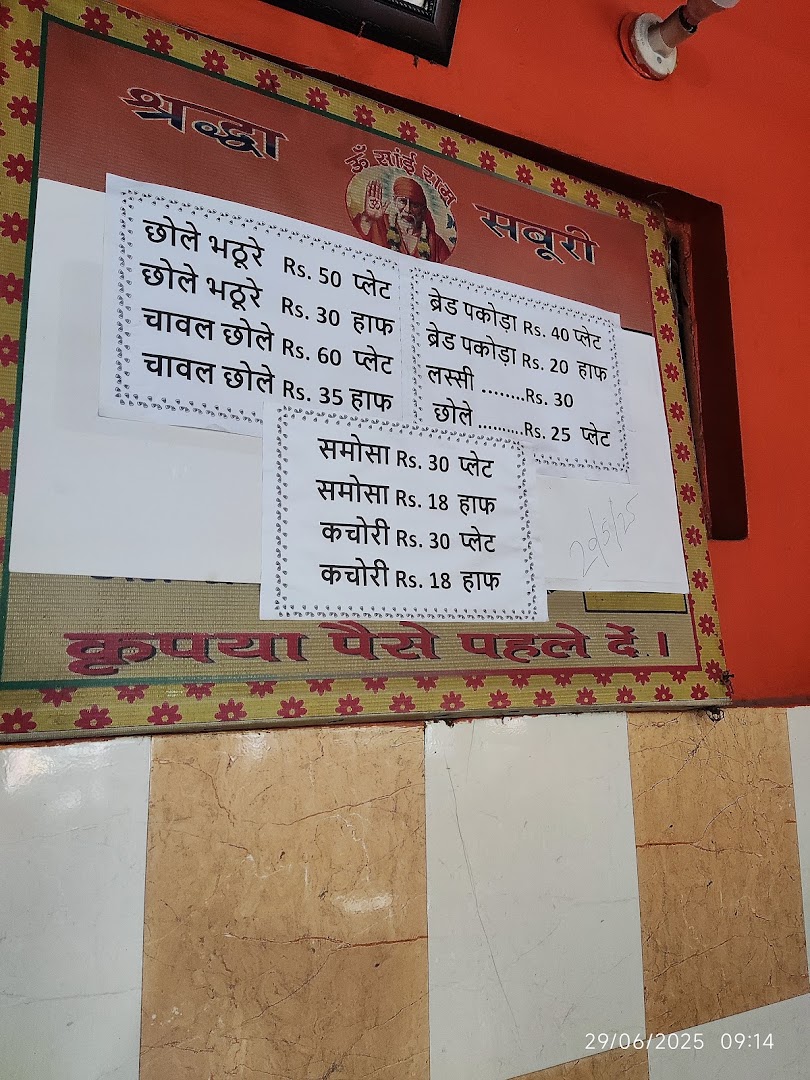 श्रद्धा
ॐ सांई राम
सबूरी
छोले भठूरे Rs. 50 प्लेट
छोले भठूरे Rs. 30 हाफ
चावल छोले Rs. 60 प्लेट
चावल छोले Rs. 35 हाफ
ब्रेड पकोड़ा Rs. 40 प्लेट
ब्रेड पकोड़ा Rs. 20 हाफ
लस्सी ........Rs. 30
छोले ..........Rs. 25 प्लेट
समोसा Rs. 30 प्लेट
समोसा Rs. 18 हाफ
कचोरी Rs. 30 प्लेट
कचोरी Rs. 18 हाफ
29/5/25
कृपया पैसे पहले दें ।
29/06/2025 09:14